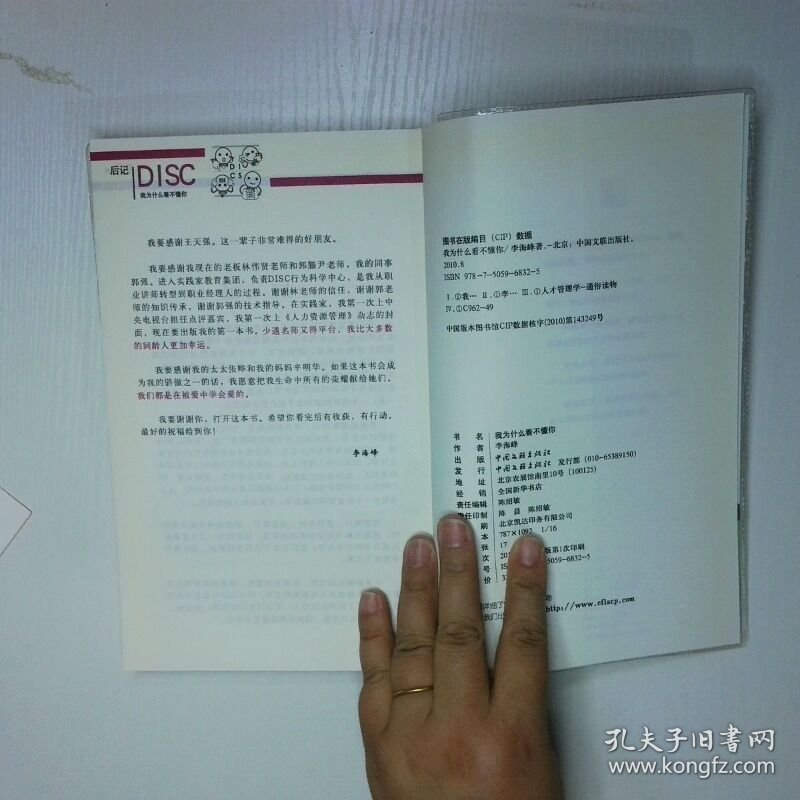 后记
DISC
D I
C S
我为什么看不懂你
我要感谢王天强。这一辈子非常难得的好朋友。
我要感谢我现在的老板林伟贤老师和郭腾尹老师，我的同事
郭强。进入实践家教育集团，负责DISC行为科学中心，是我从职
业讲师转型到职业经理人的过程。谢谢林老师的信任，谢谢郭老
师的知识传承，谢谢郭强的技术指导。在实践家，我第一次上中
央电视台担任点评嘉宾，我第一次上《人力资源管理》杂志的封
面，现在要出版我的第一本书。少遇名师又得平台，我比大多数
的同龄人更加幸运。
我要感谢我的太太张晔和我的妈妈辛明华。如果这本书会成
为我的骄傲之一的话，我愿意把我生命中所有的荣耀献给她们。
我们都是在被爱中学会爱的。
我要谢谢你，打开这本书。希望你看完后有收获，有行动。
最好的祝福给到你！
李海峰
图书在版编目（CIP）数据
我为什么看不懂你/李海峰著.-北京：中国文联出版社，
2010.8
ISBN 978-7-5059-6832-5
Ⅰ.①我… Ⅱ.①李… Ⅲ.①人才管理学-通俗读物
Ⅳ.①C962-49
中国版本图书馆CIP数据核字(2010)第143249号
书 名 我为什么看不懂你
作 者 李海峰
出 版 中国文联出版社
发 行 中国文联出版社 发行部 (010-65389150)
地 址 北京农展馆南里10号 (100125)
经 销 全国新华书店
责任编辑 陈绍敏
责任印制 陈晨 陈绍敏
刷 北京凯达印务有限公司
本 787×1092 1/16
张 17
次 20 版第1次印刷
号 IS 5059-6832-5
价 3
详细了
http://www.cflacp.com
我们出
孔夫子旧书网
www.kongfz.com